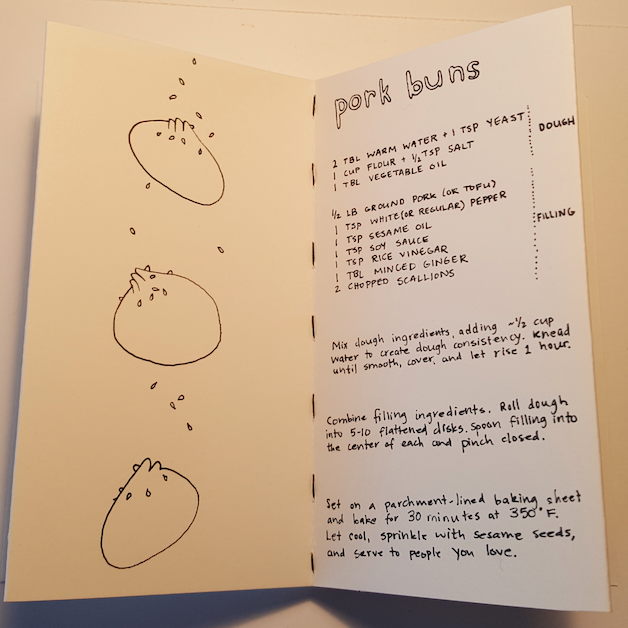 pork buns
2 TBL WARM WATER + 1 TSP YEAST
1 CUP FLOUR + ½ TSP SALT
1 TBL VEGETABLE OIL
DOUGH
½ LB GROUND PORK (OR TOFU)
1 TSP WHITE (OR REGULAR) PEPPER
1 TSP SESAME OIL
1 TSP SOY SAUCE
1 TSP RICE VINEGAR
1 TBL MINCED GINGER
2 CHOPPED SCALLIONS
FILLING
Mix dough ingredients, adding ~½ cup
water to create dough consistency. Knead
until smooth, cover, and let rise 1 hour.
Combine filling ingredients. Roll dough
into 5-10 flattened disks. Spoon filling into
the center of each and pinch closed.
Set on a parchment-lined baking sheet
and bake for 30 minutes at 350°F.
Let cool, sprinkle with sesame seeds,
and serve to people you love.